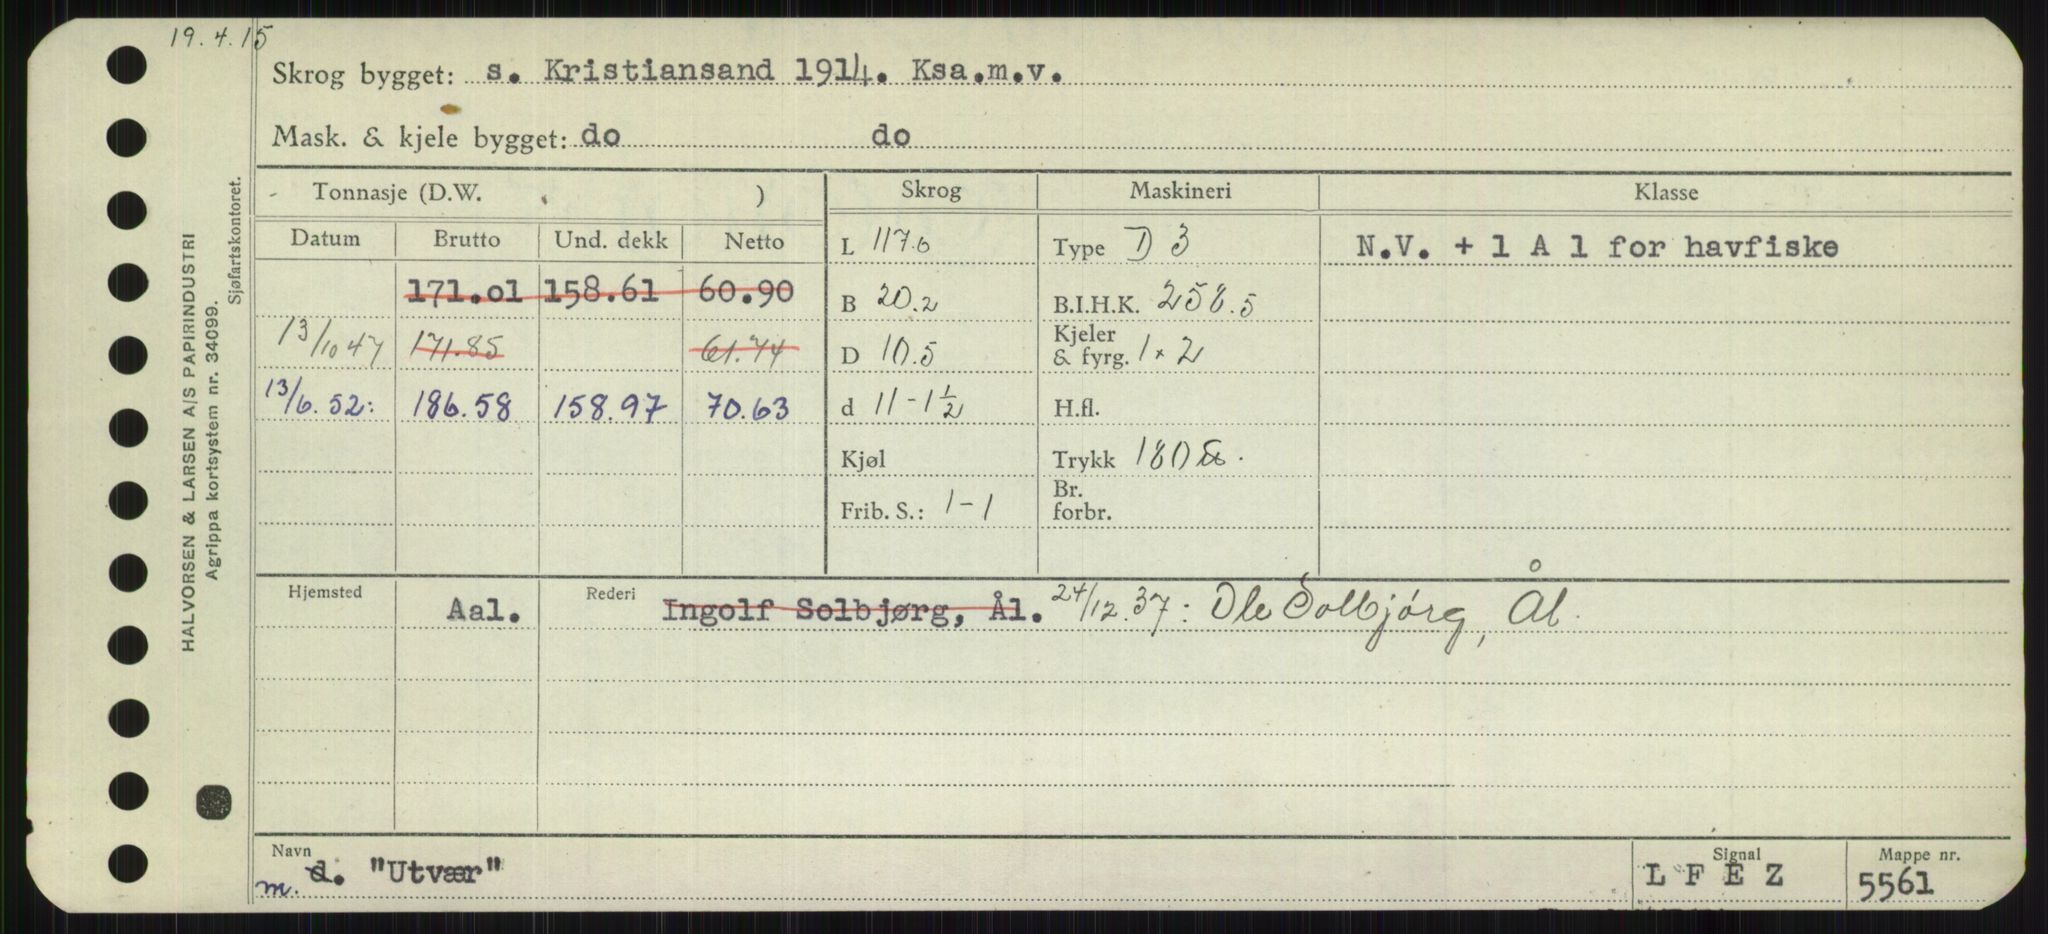 19.4.15
Skrog bygget: s. Kristiansand 1914. Ksa.m.v.
Mask. & kjele bygget: do do
Tonnasje (D.W. ) Skrog Maskineri Klasse
Datum Brutto Und. dekk Netto L 117.6 Type D 3 N.V. + 1 A 1 for havfiske
171.01 158.61 60.90 B 20.2 B.I.H.K. 258.5
13/10 47 171.85 61.74 D 10.5 Kjeler & fyrg. 1 × 2
13/6.52: 186.58 158.97 70.63 d 11-1½ H.fl.
Kjøl Trykk 180
Frib. S.: 1-1 Br. forbr.
Hjemsted Aal. Rederi Ingolf Solbjørg, Ål. 24/12.37: Ole Solbjørg, Ål.
Navn m. d. "Utvær" Signal L F E Z Mappe nr. 5561
HALVORSEN & LARSEN A/S PAPIRINDUSTRI
Agrippa kortsystem nr. 34099.
Sjøfartskontoret.